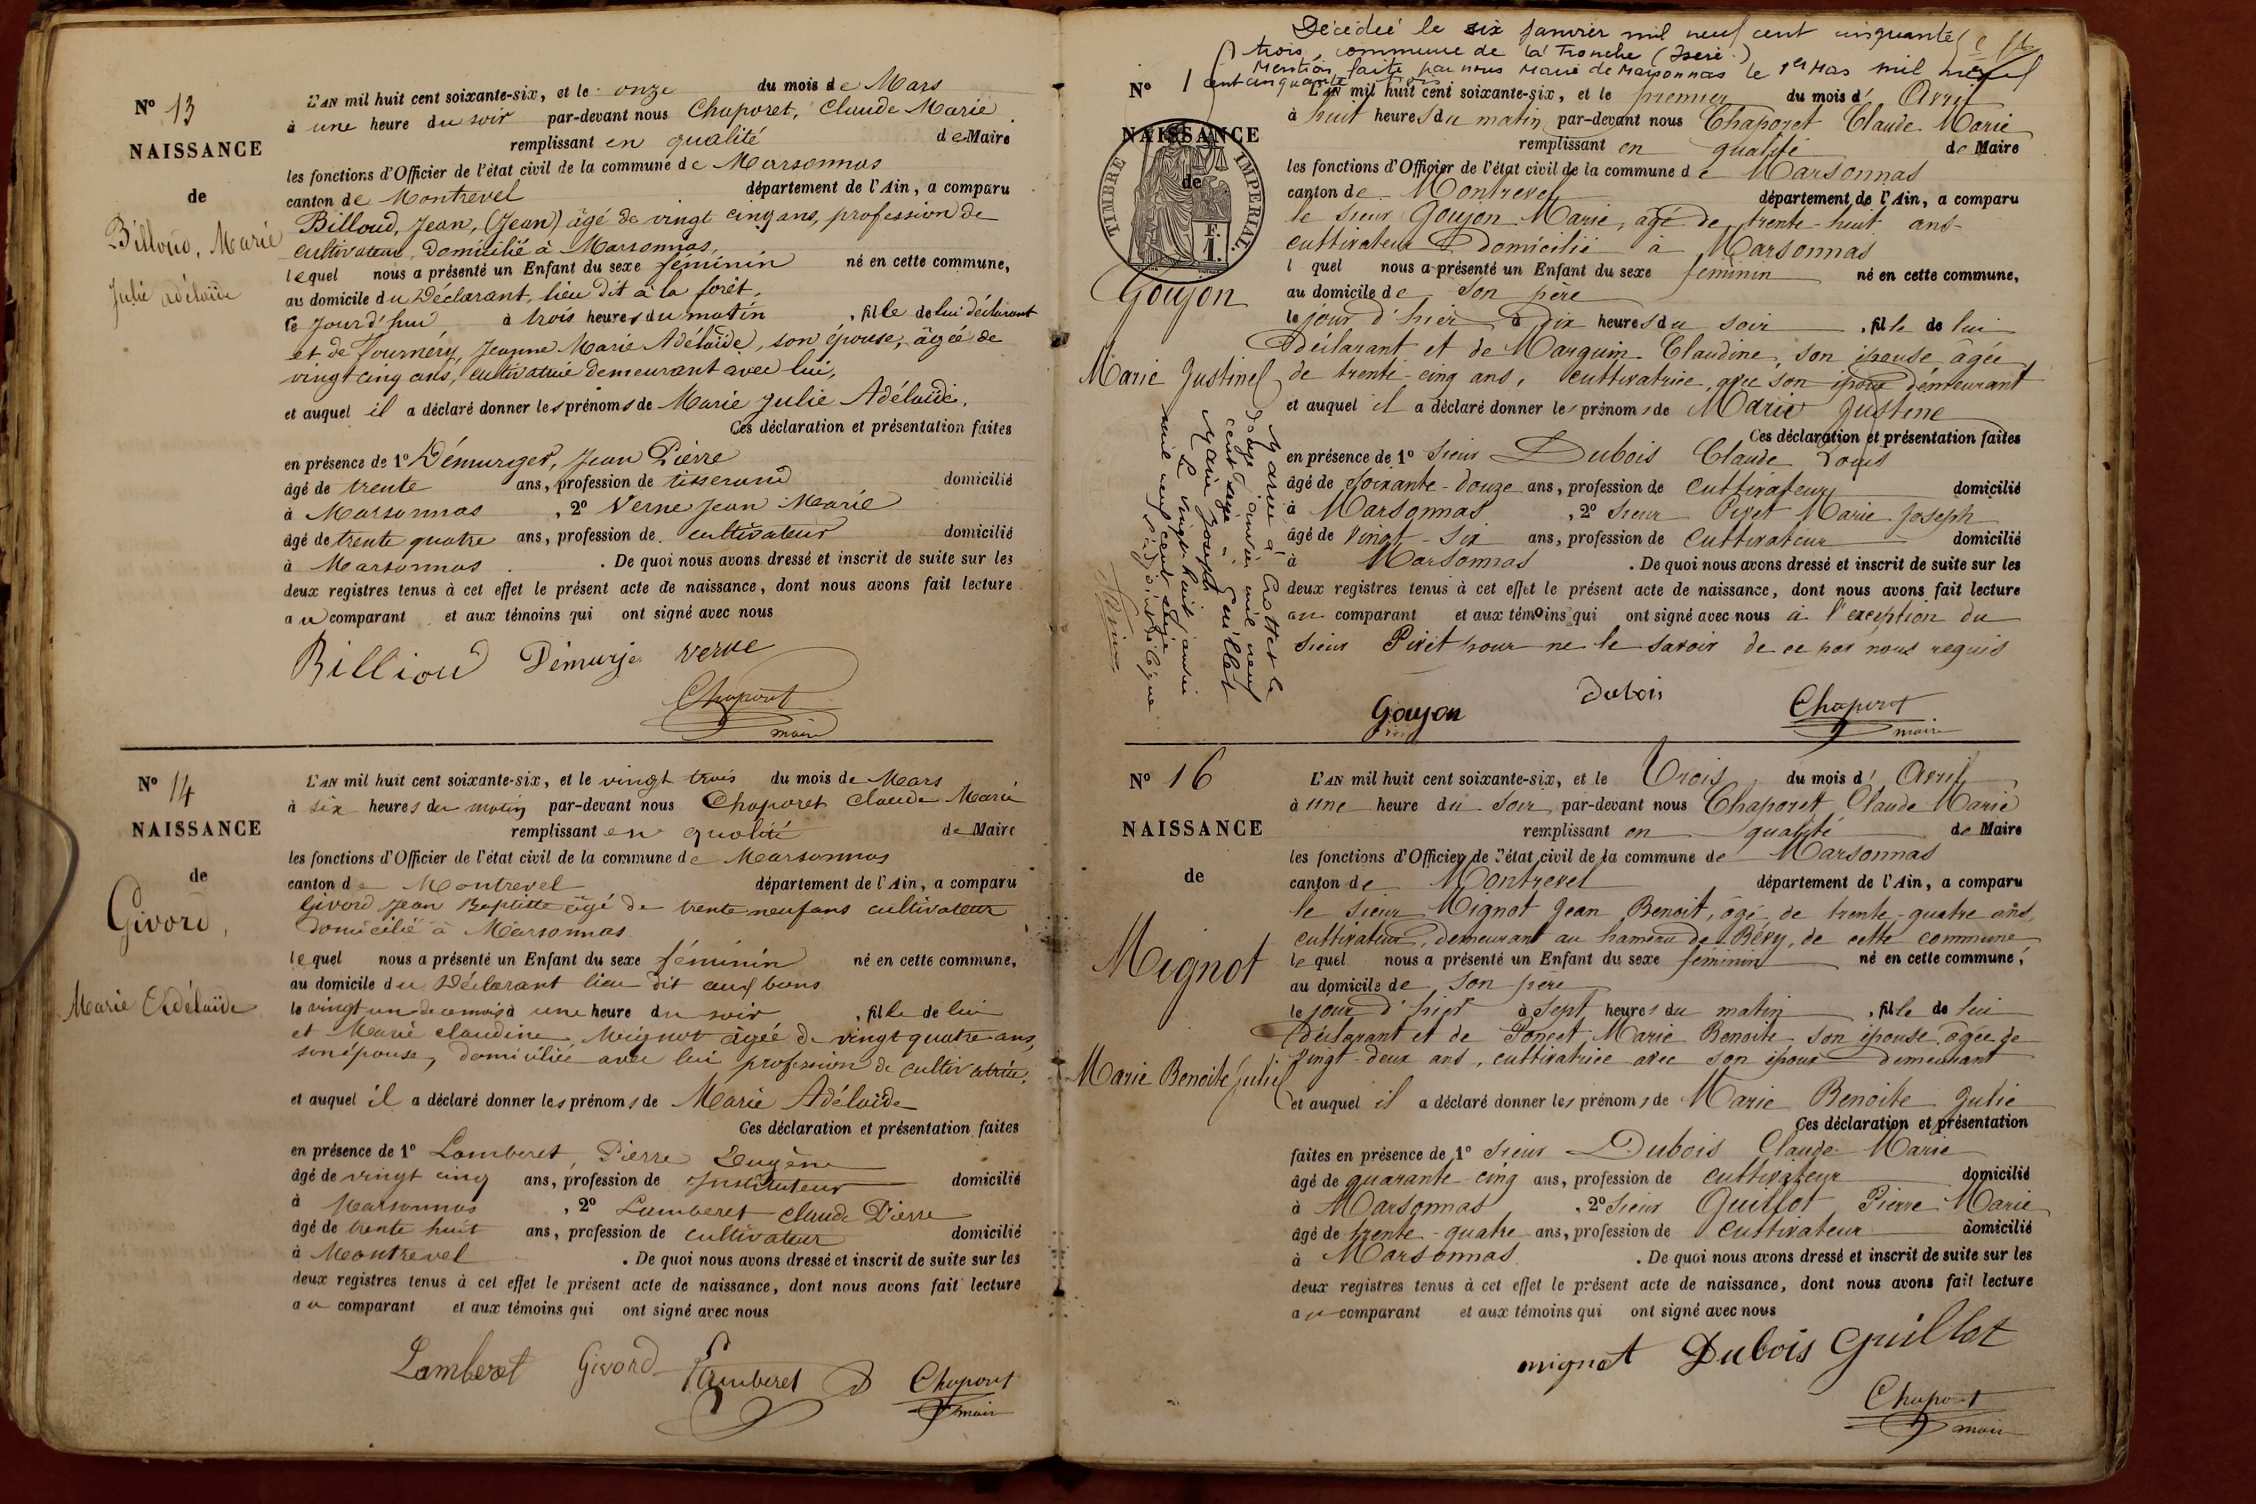 N° 13
NAISSANCE
de
Billoud, Marie
Julie Adélaïde
L'AN mil huit cent soixante-six, et le onze du mois de Mars
à une heure du soir par-devant nous Chaporet, Claude Marie
remplissant en qualité de Maire
les fonctions d'Officier de l'état civil de la commune de Marsonnas
canton de Montrevel département de l'Ain, a comparu
Billoud, Jean, (Jean) âgé de vingt cinq ans, profession de
cultivateur, domicilié à Marsonnas,
lequel nous a présenté un Enfant du sexe féminin né en cette commune,
au domicile du Déclarant, lieu dit à la forêt,
ce jourd'hui à trois heures du matin, fille de lui déclarant
et de Fournéry, Jeanne Marie Adélaïde, son épouse, âgée de
vingt cinq ans, cultivatrice demeurant avec lui,
et auquel il a déclaré donner les prénoms de Marie Julie Adélaïde.
Ces déclaration et présentation faites
en présence de 1° Démurger, Jean Pierre
âgé de trente ans, profession de tisserand domicilié
à Marsonnas, 2° Verne Jean Marie
âgé de trente quatre ans, profession de cultivateur domicilié
à Marsonnas. De quoi nous avons dressé et inscrit de suite sur les
deux registres tenus à cet effet le présent acte de naissance, dont nous avons fait lecture
au comparant et aux témoins qui ont signé avec nous
Billiou Démurje verne
Chaporet
maire
N° 14
NAISSANCE
de
Givord,
Marie Adélaïde
L'AN mil huit cent soixante-six, et le vingt trois du mois de Mars
à six heures du matin par-devant nous Chaporet Claude Marie
remplissant en qualité de Maire
les fonctions d'Officier de l'état civil de la commune de Marsonnas
canton de Montrevel département de l'Ain, a comparu
Givord Jean Baptiste âgé de trente neuf ans cultivateur
domicilié à Marsonnas
lequel nous a présenté un Enfant du sexe féminin né en cette commune,
au domicile du Déclarant lieu dit aux bons
le vingt un de ce mois à une heure du soir, fille de lui
et Marie Claudine Mignot âgée de vingt quatre ans,
son épouse, domiciliée avec lui profession de cultivatrice.
et auquel il a déclaré donner les prénoms de Marie Adélaïde
Ces déclaration et présentation faites
en présence de 1° Lamberet, Pierre Eugène
âgé de vingt cinq ans, profession de Instituteur domicilié
à Marsonnas, 2° Lamberet Claude Pierre
âgé de trente huit ans, profession de cultivateur domicilié
à Montrevel. De quoi nous avons dressé et inscrit de suite sur les
deux registres tenus à cet effet le présent acte de naissance, dont nous avons fait lecture
au comparant et aux témoins qui ont signé avec nous
Lamberet Givord Lamberet Chaporet
maire
Décédée le six Janvier mil neuf cent cinquante
trois, commune de La Tronche (Isère.)
Mention faite par nous Maire de Marsonnas le 1er Mars mil neuf
cent cinquante trois
N° 1
NAISSANCE
de
TIMBRE IMPERIAL.
F.
1.
Goujon
Marie Justine
Mariée à Crottet le
douze Janvier mil neuf
cent seize à Guillot
Marie Joseph
Le vingt huit janvier
mil neuf cent seize
L'AN mil huit cent soixante-six, et le premier du mois d'Avril
à huit heures du matin par-devant nous Chaporet Claude Marie
remplissant en qualité de Maire
les fonctions d'Officier de l'état civil de la commune de Marsonnas
canton de Montrevel département de l'Ain, a comparu
le sieur Goujon Marie, âgé de trente-huit ans
cultivateur domicilié à Marsonnas
l quel nous a présenté un Enfant du sexe féminin né en cette commune,
au domicile de son père
le jour d'hier à dix heures du soir, fille de lui
déclarant et de Marguin Claudine, son épouse âgée
de trente-cinq ans, cultivatrice avec son époux demeurant
et auquel il a déclaré donner les prénoms de Marie Justine
Ces déclaration et présentation faites
en présence de 1° Sieur Dubois Claude Louis
âgé de soixante-douze ans, profession de cultivateur domicilié
à Marsonnas, 2° Sieur Pivet Marie Joseph
âgé de vingt-six ans, profession de cultivateur domicilié
à Marsonnas. De quoi nous avons dressé et inscrit de suite sur les
deux registres tenus à cet effet le présent acte de naissance, dont nous avons fait lecture
au comparant et aux témoins qui ont signé avec nous à l'exception du
sieur Pivet pour ne le savoir de ce par nous requis
Goujon Dubois Chaporet
maire
N° 16
NAISSANCE
de
Mignot
Marie Benoite Julie
L'AN mil huit cent soixante-six, et le Trois du mois d'Avril
à une heure du soir par-devant nous Chaporet Claude Marie
remplissant en qualité de Maire
les fonctions d'Officier de l'état civil de la commune de Marsonnas
canton de Montrevel département de l'Ain, a comparu
le sieur Mignot Jean Benoit, âgé de trente-quatre ans,
cultivateur, demeurant au hameau de Béry, de cette commune
lequel nous a présenté un Enfant du sexe féminin né en cette commune,
au domicile de son père
le jour d'hier à sept heures du matin, fille de lui
déclarant et de Poncet Marie Benoite son épouse âgée de
vingt-deux ans, cultivatrice avec son époux demeurant
et auquel il a déclaré donner les prénoms de Marie Benoite Julie
Ces déclaration et présentation
faites en présence de 1° Sieur Dubois Claude Marie
âgé de quarante-cinq ans, profession de cultivateur domicilié
à Marsonnas, 2° Sieur Guillot Pierre Marie
âgé de trente-quatre ans, profession de cultivateur domicilié
à Marsonnas. De quoi nous avons dressé et inscrit de suite sur les
deux registres tenus à cet effet le présent acte de naissance, dont nous avons fait lecture
au comparant et aux témoins qui ont signé avec nous
mignot Dubois Guillot
Chaporet
maire